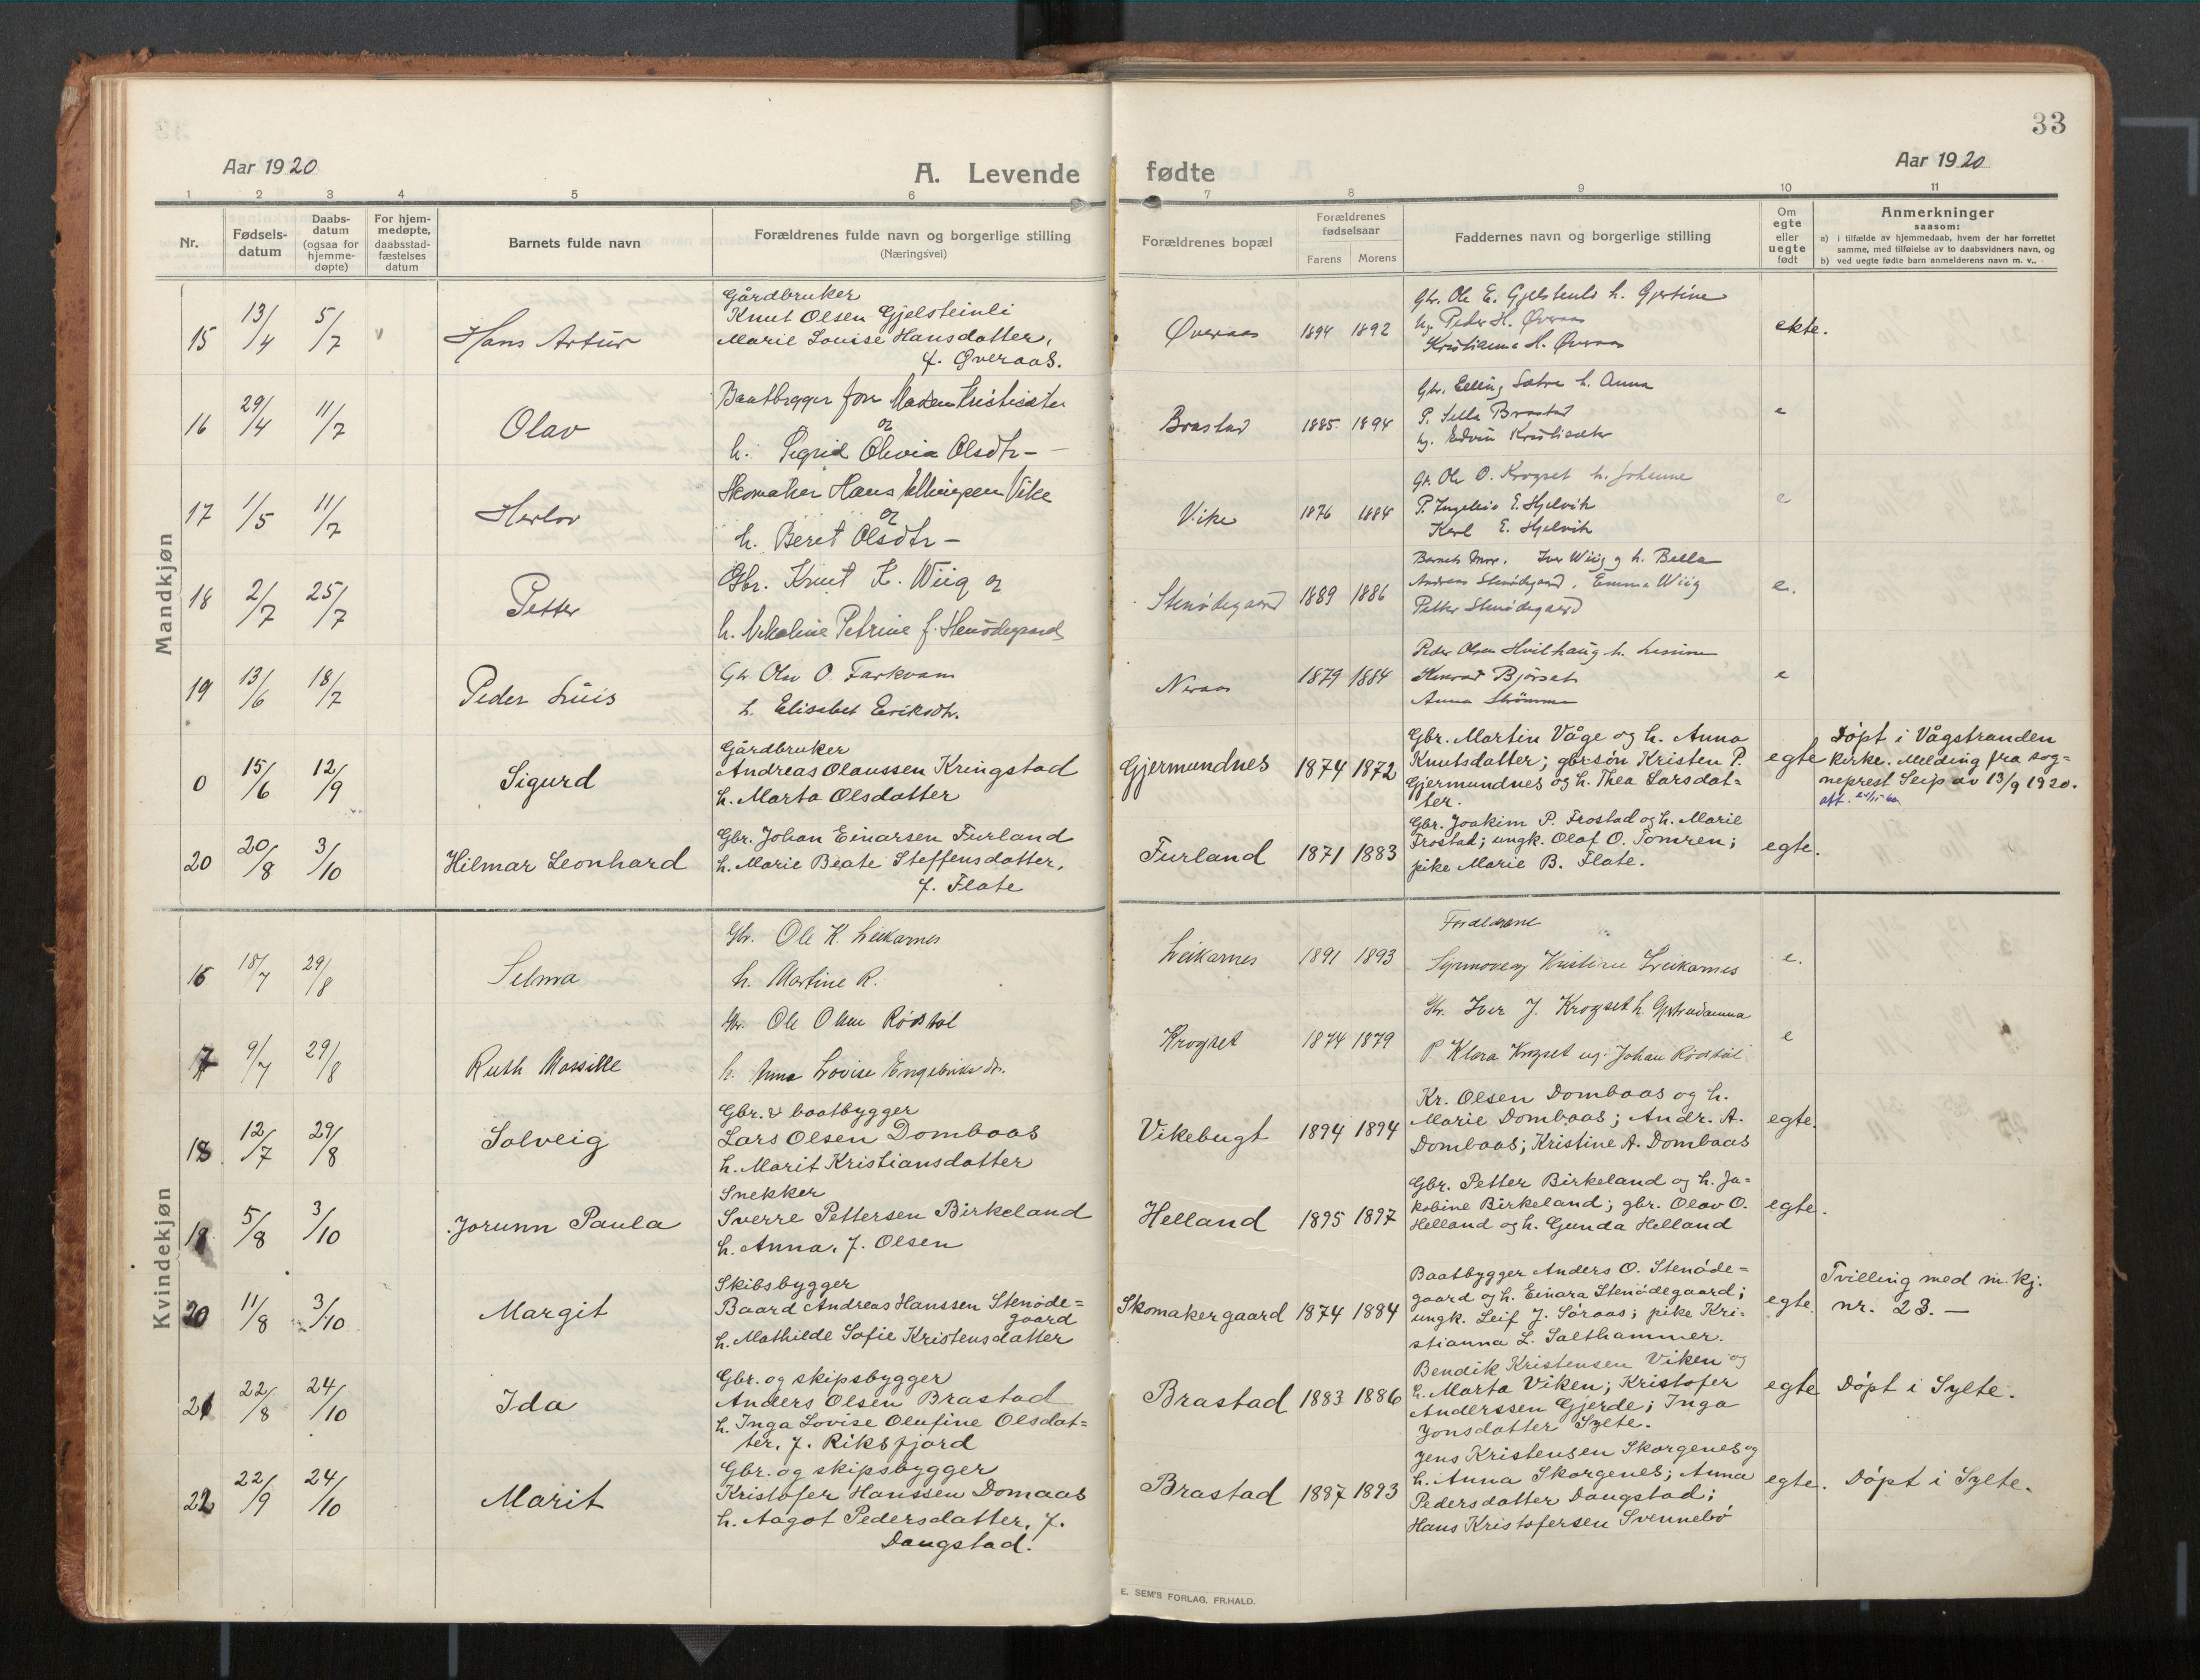 33
Aar 1920
A. Levende fødte
Aar 1920
1 2 3 4 5 6 7 8 9 10 11
Nr.
Fødsels-
datum
Daabs-
datum
(ogsaa for
hjemme-
døpte)
For hjem-
medøpte,
daabsstad-
fæstelses
datum
Barnets fulde navn
Forældrenes fulde navn og borgerlige stilling
(Næringsvei)
Forældrenes bopæl
Forældrenes
fødselsaar
Farens Morens
Faddernes navn og borgerlige stilling
Om
egte
eller
uegte
født
Anmerkninger
saasom:
a) i tilfælde av hjemmedaab, hvem der har forrettet
samme, med tilføielse av to daabsvidners navn, og
b) ved uegte fødte barn anmelderens navn m. v..
Mandkjøn
15 13/4 5/7 Hans Artur
Gårdbruker
Knut Olsen Gjelsteinli
Marie Louise Hansdatter,
f. Øveraas.
Øveraas 1894 1892
Gbr. Ole E. Gjelstenli h. Gjertine
Peder H. Øveraas
H. Øveraas
ekte.
16 29/4 11/7 Olav
Baatbygger
og
h. Sigrid Olivia Olsdtr-
Brastad 1885 1894
Gbr. Elling Sætre h. Anna
P. Brastad
Edvin
e
17 1/5 11/7 Herlov
Skomaker Hans Vike
og
h. Beret Olsdtr-
Vike 1876 1884
Gbr. Ole O. Krogset h. Johanne
P. E. Hjelvik
Karl E. Hjelvik
e
18 2/7 25/7 Petter
Gbr. Knut K. Wiig og
h. Nikoline Petrine f. Stenødegaard
Stenødegaard 1889 1886
Barnets Mor. Iver Wiig og h. Bella
Andreas Stenødegaard, Emma Wiig
Petter Stenødegaard
e.
19 13/6 18/7 Peder Luis
Gbr Olav O. Farkvam
h. Elisabet Eriksdtr.
Neraas 1879 1884
Peder Olsen Hvilhaug h.
Konrad Bjørset
Anna Strømme
e
0 15/6 12/9 Sigurd
Gårdbruker
Andreas Olaussen Kringstad
h. Marta Olsdatter
Gjermundnes 1874 1872
Gbr. Martin Våge og h. Anna
Knutsdatter; gbrsøn Kristen P.
Gjermundnes og h. Thea Larsdat-
ter.
egte
Døpt i Vågstranden
kirke. Melding fra sog-
neprest Seip av 13/9 1920.
20 20/8 3/10 Hilmar Leonhard
Gbr. Johan Einarsen Furland
h. Marie Beate Steffensdatter,
f. Flate
Furland 1871 1883
Gbr. Joakim P. Frostad og h. Marie
Frostad; ungk. Olaf O. Tomren;
pike Marie B. Flate.
egte.
Kvindekjøn
16 18/7 29/8 Selma
Gbr. Ole K. Leikarnes
h. Martine R.
Leikarnes 1891 1893
Forældrene
Synnøve og Kristine Leikarnes
e.
17 9/7 29/8 Ruth Massille
Gbr. Ole Olsen Rødstøl
h. Anna Lovise Engebriksdtr.
Krogset 1874 1879
Gbr. Iver J. Krogset h.
P. Klara Krogset ug. Johan Rødstøl
e
18 12/7 29/8 Solveig
Gbr. & baatbygger
Lars Olsen Dombaas
h. Marit Kristiansdatter
Vikebugt 1894 1894
Kr. Olsen Dombaas og h.
Marie Dombaas; Andr. A.
Dombaas; Kristine A. Dombaas
egte.
19 5/8 3/10 Jorunn Paula
Snekker
Sverre Pettersen Birkeland
h. Anna, f. Olsen
Helland 1895 1897
Gbr. Petter Birkeland og h. Ja-
kobine Birkeland; gbr. Olav O.
Helland og h. Gunda Helland
egte.
20 11/8 3/10 Margit
Skibsbygger
Baard Andreas Hanssen Stenøde=
gaard
h. Mathilde Sofie Kristensdatter
Skomakergaard 1874 1884
Baatbygger Anders O. Stenøde=
gaard og h. Einara Stenødegaard;
ungk. Leif J. Søraas; pike Kri-
stianna L. Salthammer.
egte.
Tvilling med m. kj.
nr. 23. —
21 22/8 24/10 Ida
Gbr. og skipsbygger
Anders Olsen Brastad
h. Inga Lovise Olufine Olsdat=
ter, f. Riksfjord
Brastad 1883 1886
Bendik Kristensen Viken og
h. Marta Viken; Kristofer
Anderssen Gjerde; Inga
Jonsdatter Sylte.
egte
Døpt i Sylte.
22 22/9 24/10 Marit
Gbr. og skipsbygger
Kristofer Hanssen Domaas
h. Aagot Pedersdatter, f.
Daugstad.
Brastad 1887 1893
Jens Kristensen Skorgenes og
h. Anna Skorgenes; Anna
Pedersdatter Daugstad;
Hans Kristofersen Svennebø
egte.
Døpt i Sylte.
E. SEM'S FORLAG, FR.HALD.